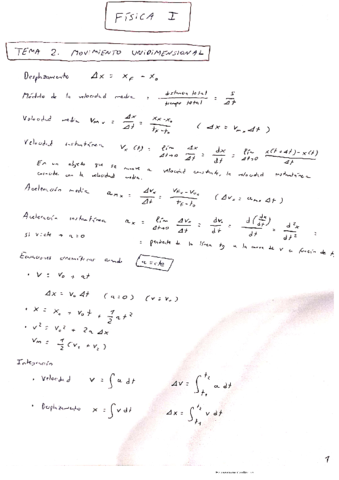 FÍSICA I
TEMA 2. MOVIMIENTO UNIDIMENSIONAL
Desplazamiento Δx = x_F - x_0
Módulo de la velocidad media = distancia total / tiempo total = s / Δt
Velocidad media v_mx = Δx/Δt = (x_F - x_0)/(t_F - t_0) (Δx = v_m Δt)
Velocidad instantánea v_x (t) = lim Δt→0 Δx/Δt = dx/dt = lim Δt→0 (x(t+Δt) - x(t))/Δt
En un objeto que se mueve a velocidad constante, la velocidad instantánea
coincide con la velocidad media.
Aceleración media a_mx = Δv_x/Δt = (v_Fx - v_0x)/(t_F - t_0) (Δv_x = a_m Δt)
Aceleración instantánea a_x = lim Δt→0 Δv_x/Δt = dv_x/dt = d(dx/dt)/dt = d²x/dt² =
si v = cte → a = 0 = pendiente de la línea tg a la curva de v en función de t
Ecuaciones cinemáticas cuando a = cte
• v = v_0 + at
Δx = v_0 Δt (a = 0) (v = v_0)
• x = x_0 + v_0 t + 1/2 a t²
• v² = v_0² + 2a Δx
v_m = 1/2 (v_0 + v_F)
Integración
• Velocidad v = ∫ a dt Δv = ∫_{t_1}^{t_2} a dt
• Desplazamiento x = ∫ v dt Δx = ∫_{t_1}^{t_2} v dt
1